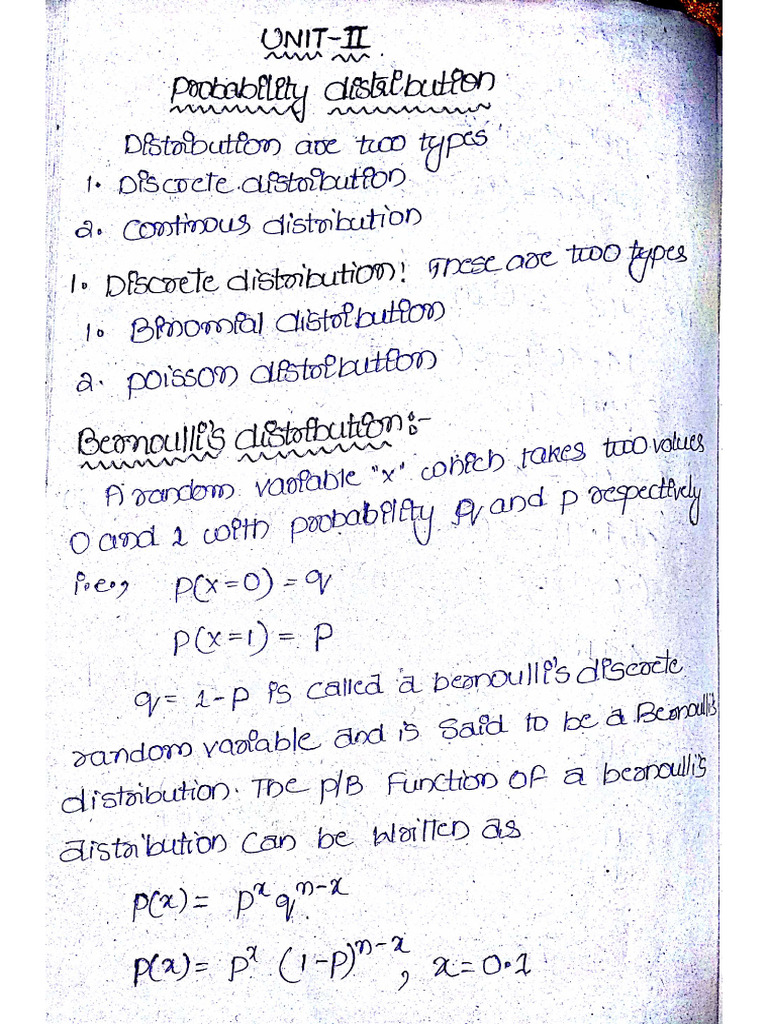 UNIT-II
Probability distribution
Distribution are two types
1. Discrete distribution
2. Continous distribution
1. Discrete distribution: These are two types
1. Binomial distribution
2. Poisson distribution
Bernoulli's distribution:-
A random variable "x" which takes two values
0 and 1 with probability q and p respectively
i.e., P(x=0) = q
P(x=1) = P
q = 1-P is called a bernoulli's discrete
random variable and is said to be a Bernoulli's
distribution. The p/B Function of a bernoulli's
distribution can be written as
P(x) = p^x q^{n-x}
P(x) = p^x (1-p)^{n-x}, x=0.1